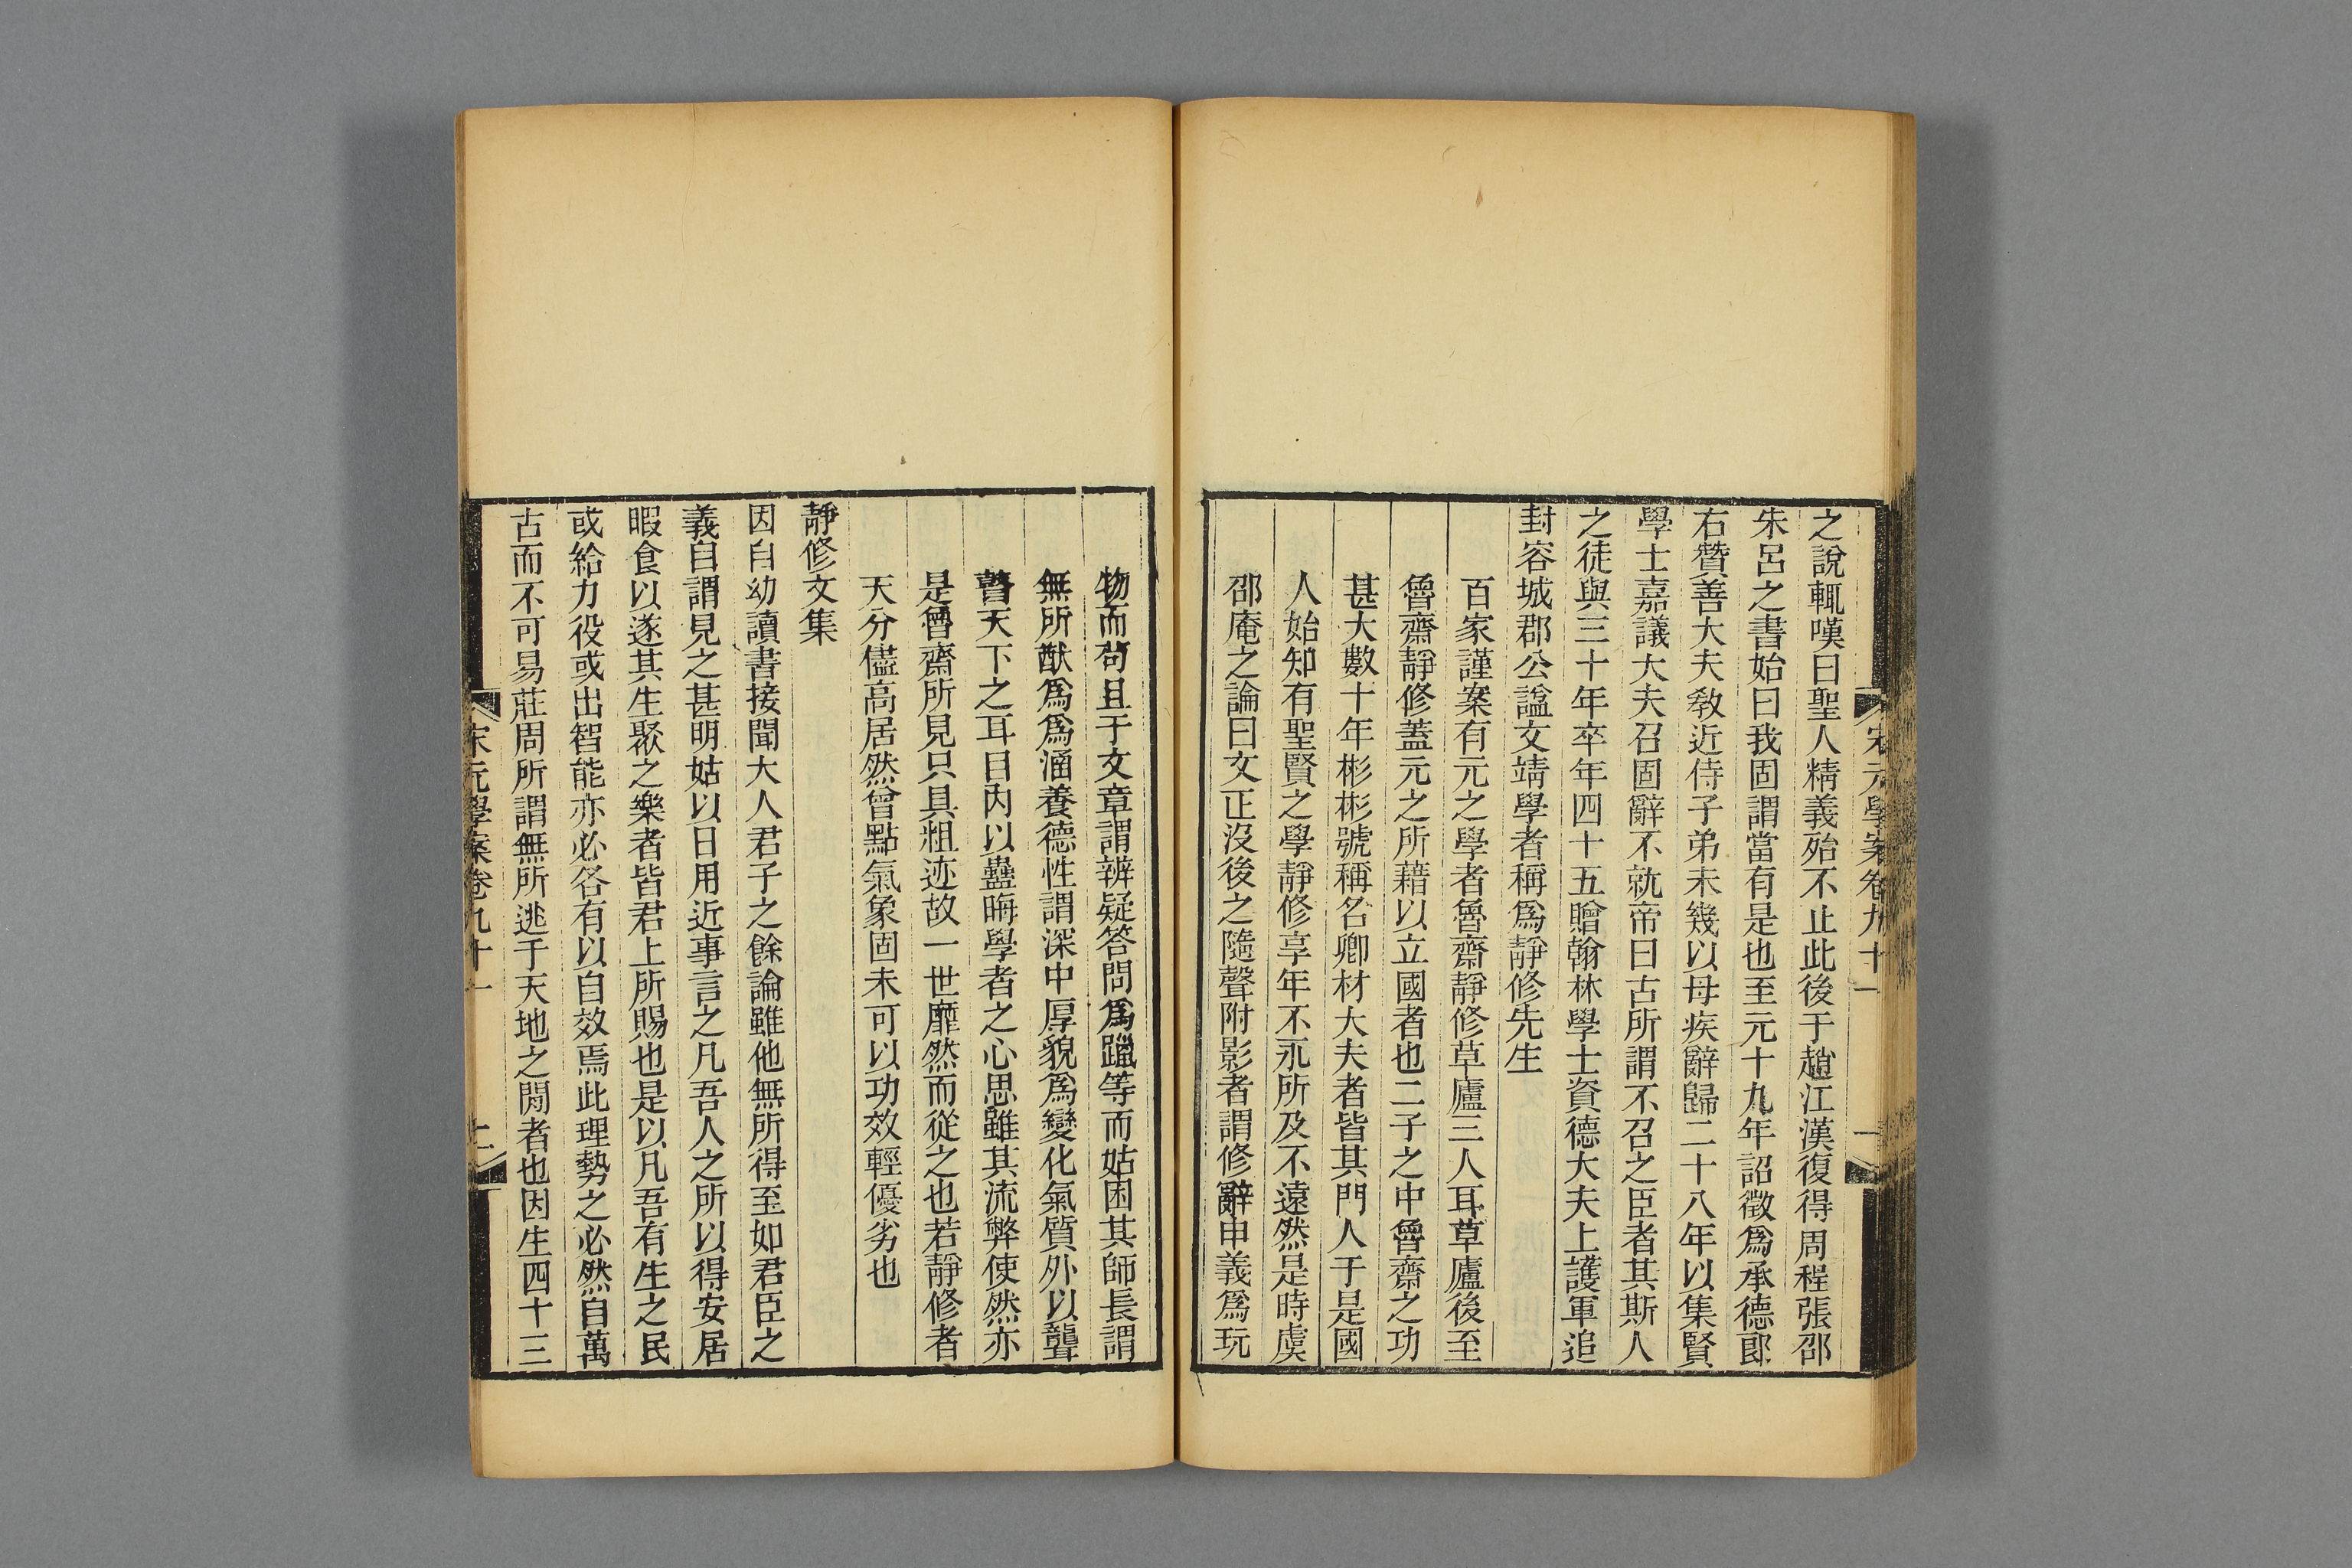 宋元學案卷九十一
一
之說輒嘆曰聖人精義殆不止此後于趙江漢復得周程張邵
朱呂之書始曰我固謂當有是也至元十九年詔徵爲承德郎
右贊善大夫敎近侍子弟未幾以母疾辭歸二十八年以集賢
學士嘉議大夫召固辭不就帝曰古所謂不召之臣者其斯人
之徒與三十年卒年四十五贈翰林學士資德大夫上護軍追
封容城郡公諡文靖學者稱爲靜修先生
百家謹案有元之學者魯齋靜修草廬三人耳草廬後至
魯齋靜修蓋元之所藉以立國者也二子之中魯齋之功
甚大數十年彬彬號稱名卿材大夫者皆其門人于是國
人始知有聖賢之學靜修享年不永所及不遠然是時虞
邵庵之論曰文正沒後之隨聲附影者謂修辭申義爲玩
物而苟且于文章謂辨疑答問爲躐等而姑困其師長謂
無所猷爲爲涵養德性謂深中厚貌爲變化氣質外以聾
瞽天下之耳目內以蠱晦學者之心思雖其流弊使然亦
是魯齋所見只具粗迹故一世靡然而從之也若靜修者
天分儘高居然曾點氣象固未可以功效輕優劣也
靜修文集
因自幼讀書接聞大人君子之餘論雖他無所得至如君臣之
義自謂見之甚明姑以日用近事言之凡吾人之所以得安居
暇食以遂其生聚之樂者皆君上所賜也是以凡吾有生之民
或給力役或出智能亦必各有以自效焉此理勢之必然自萬
古而不可易莊周所謂無所逃于天地之閒者也因生四十三
宋元學案卷九十一